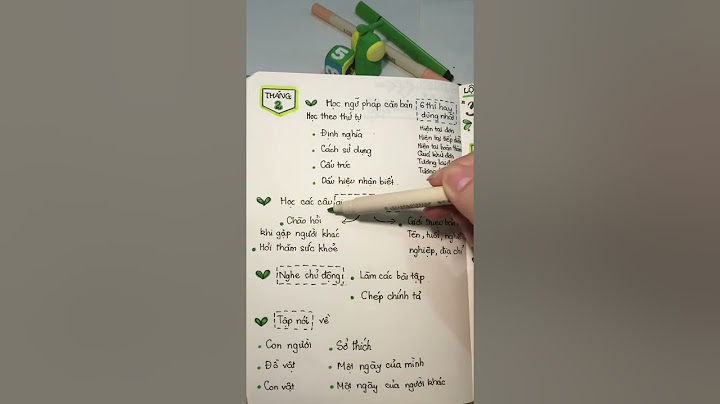 THÁNG
2
Học ngữ pháp căn bản
6 thì hay
dùng nhất
Học theo thứ tự
Hiện tại đơn
• Định nghĩa
Hiện tại tiếp
Hiện tại hoàn
• Cách sử dụng
Quá khứ đơn
• Cấu trúc
Tương lai
Tương
• Dấu hiệu nhận biết.
Học các câu
• Chào hỏi
khi gặp người khác
• Giới thiệu bản
Tên, tuổi,
• Hỏi thăm sức khoẻ
nghiệp, địa chỉ
Nghe chủ động
• Làm các bài tập
• Chép chính tả
Tập nói về
• Con người
• Sở thích
• Đồ vật
• Một ngày của mình
• Con vật
• Một ngày của người khác
5